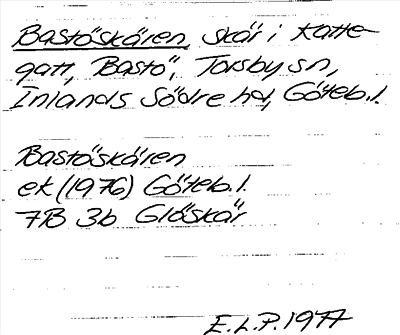 Bastöskären, skär i Katte-
gatt, Bastö, Torsby sn,
Inlands Södre hd, Göteb. l.
Bastöskären
ek (1976) Göteb. l.
7B 3b Glöskär
E.L.P. 1977